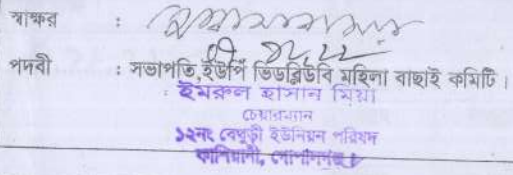 স্বাক্ষর :
পদবী : সভাপতি,ইউপি ভিডব্লিউবি মহিলা বাছাই কমিটি।
ইমরুল হাসান মিয়া
চেয়ারম্যান
১২নং বেথুড়ী ইউনিয়ন পরিষদ
কাশিয়ানী, গোপালগঞ্জ।